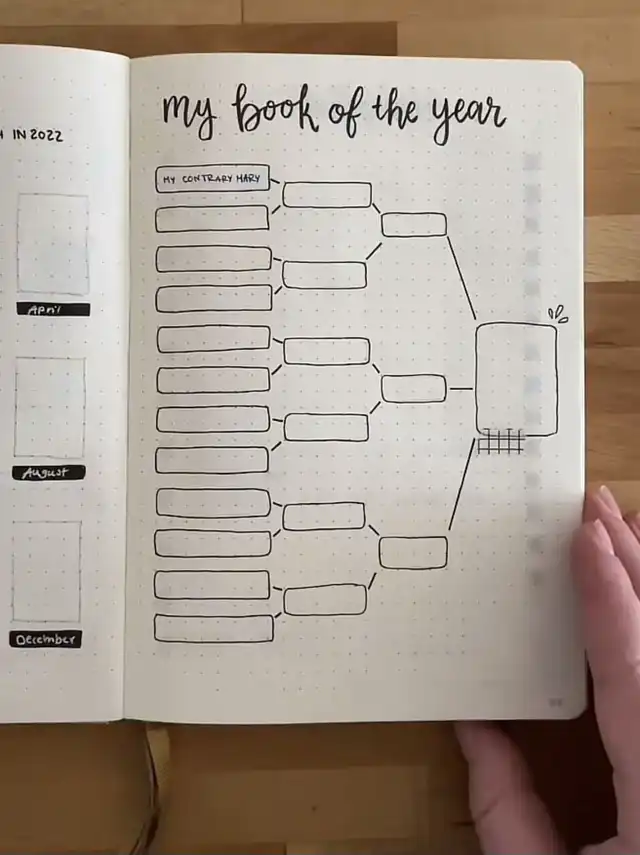 IN 2022
April
August
December
my book of the year
MY CONTRARY MARY